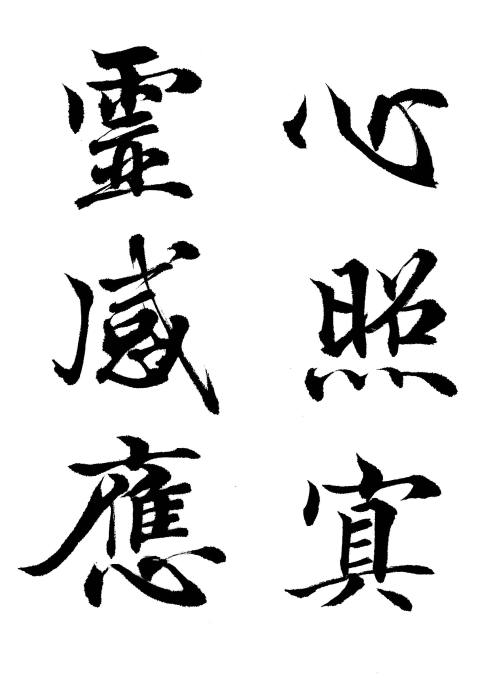 心照真
靈感應